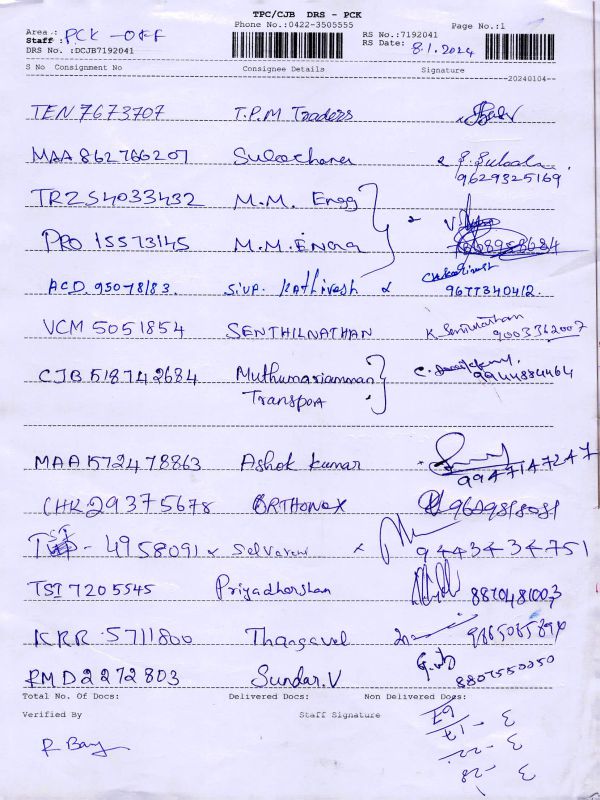 TPC/CJB DRS - PCK
Phone No.:0422-3505555
Page No.:1
Area : PCK - OFF
Staff :
DRS No. :DCJB7192041
RS No.:7192041
RS Date: 8.1.2024
S No Consignment No Consignee Details Signature
20240104
TEN 7673707 T.P.M Traders
MAA 862766207 Sulochana
9629325169
TRZS4033432 M.M. Engg
PRO 15573145 M.M. Engg
ACD 95078183. Siva Kathivesh
9677340412.
VCM 5051854 SENTHILNATHAN K. Senthilnathan
9003362007
CJB 518742684 Muthumariamman
Transport
9944884464
MAA 572478863 Ashok Kumar
9947147247
CHK 29375678 ORTHONOX
4958091 Selvaram 9443434751
TSI 7205545 Priyadharshan 8870481003
KRR 5711800 Thangavel
RMD 2272803 Sundar.V
8807550050
Total No. Of Docs: Delivered Docs: Non Delivered Docs:
Verified By Staff Signature